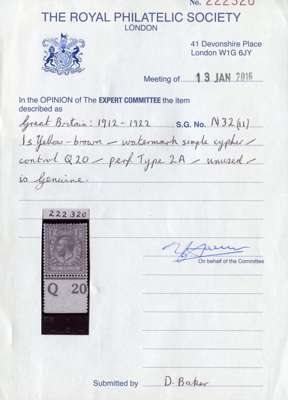 No. 222320
THE ROYAL PHILATELIC SOCIETY
LONDON
41 Devonshire Place
London W1G 6JY
Meeting of 13 JAN 2016
In the OPINION of The EXPERT COMMITTEE the item
described as
Great Britain: 1912-1922 S.G. No. N32(11)
1s Yellow-brown - watermark simple cypher -
control Q20 - perf Type 2A - unused -
is Genuine.
222 320
Q 20
On behalf of the Committee
Submitted by D. Baker